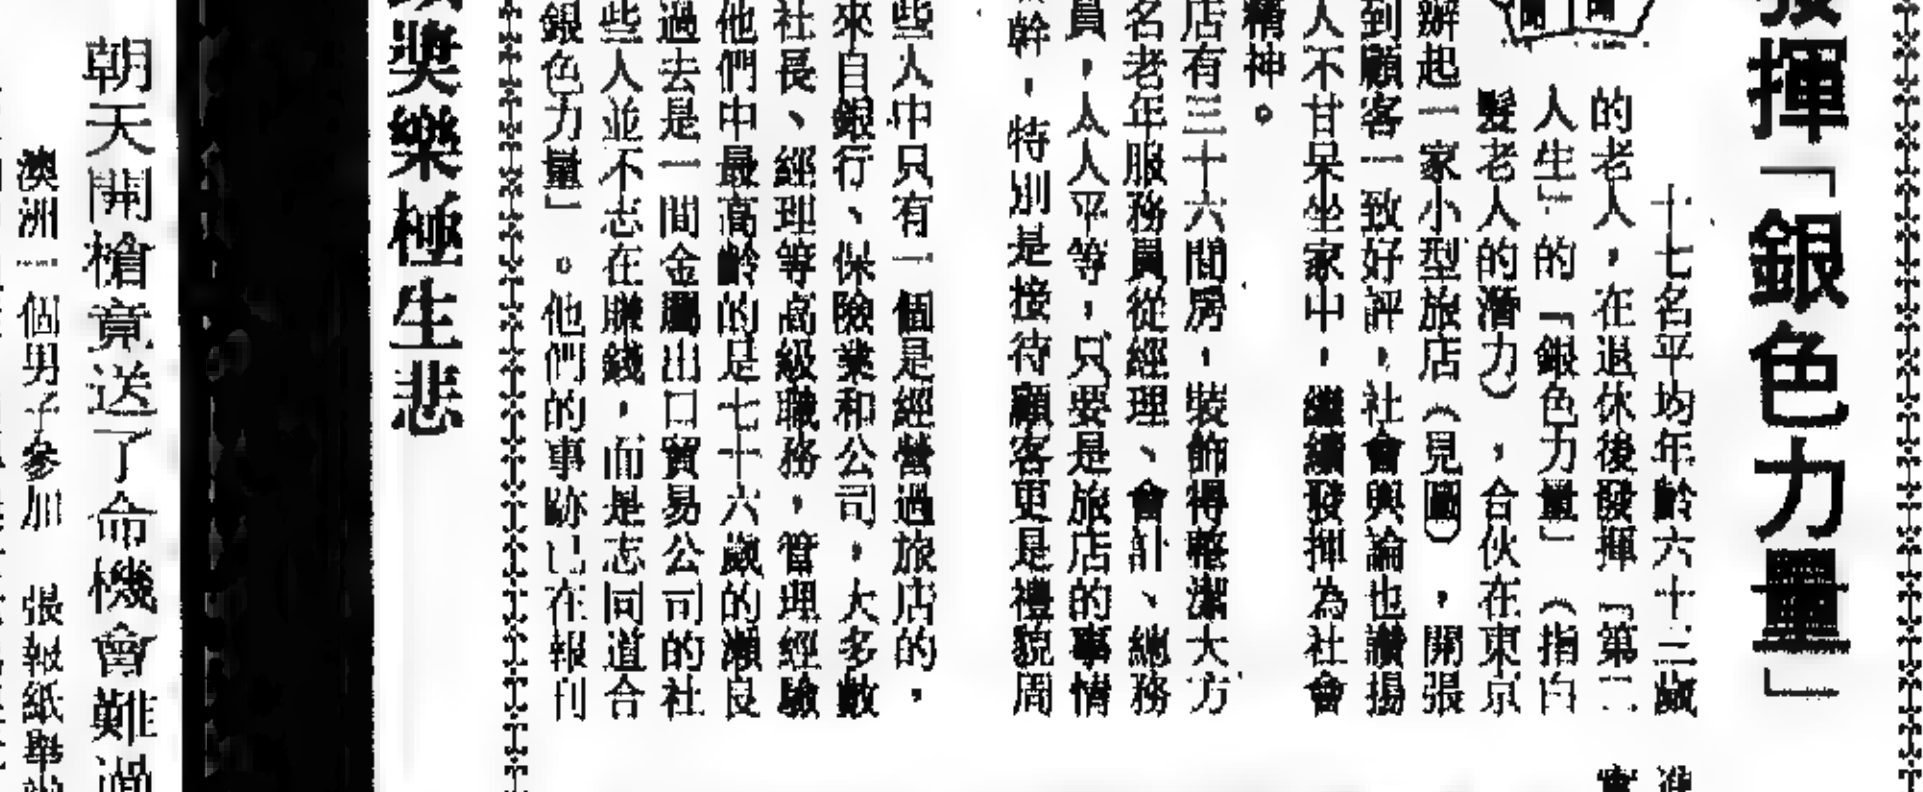 發揮「銀色力量」
十七名平均年齡六十三歲
的老人，在退休後發揮「第二
人生」的「銀色力量」（指白
髮老人的潛力），合伙在東京
辦起一家小型旅店（見圖），開張
到顧客一致好評，社會輿論也讚揚
人不甘呆坐家中，繼續發揮為社會
精神。
店有三十六間房，裝飾得整潔大方
名老年服務員從經理、會計、總務
員，人人平等，只要是旅店的事情
幹，特別是接待顧客更是禮貌周
些人中只有一個是經營過旅店的，
來自銀行、保險業和公司，大多數
社長、經理等高級職務，管理經驗
他們中最高齡的是七十六歲的瀨良
過去是一間金屬出口貿易公司的社
些人並不志在賺錢，而是志同道合
銀色力量」。他們的事跡已在報刊
獎樂極生悲
朝天開槍竟送了命機會難
澳洲一個男子參加 張報紙舉